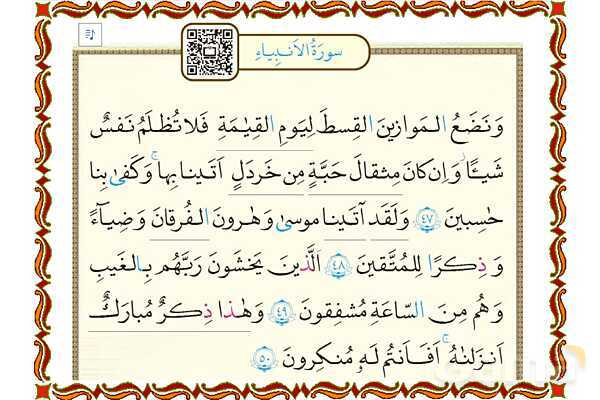 سورَةُ الاَنبِياءِ
وَ نَضَعُ المَوازينَ القِسطَ لِيَومِ القِيٰمَةِ فَلا تُظلَمُ نَفسٌ
شَيـًٔا وَ اِن كانَ مِثقالَ حَبَّةٍ مِن خَردَلٍ اَتَينا بِها ۚ وَ كَفىٰ بِنا
حٰسِبينَ ﴿٤٧﴾ وَ لَقَد آتَينا موسىٰ وَ هٰرونَ الفُرقانَ وَ ضِياۤءً
وَ ذِكرًا لِلمُتَّقينَ ﴿٤٨﴾ اَلَّذينَ يَخشَونَ رَبَّهُم بِالغَيبِ
وَ هُم مِنَ السّاعَةِ مُشفِقونَ ﴿٤٩﴾ وَ هٰذا ذِكرٌ مُبارَكٌ
اَنزَلنٰهُ ۚ اَفَاَنتُم لَهٗ مُنكِرونَ ﴿٥٠﴾